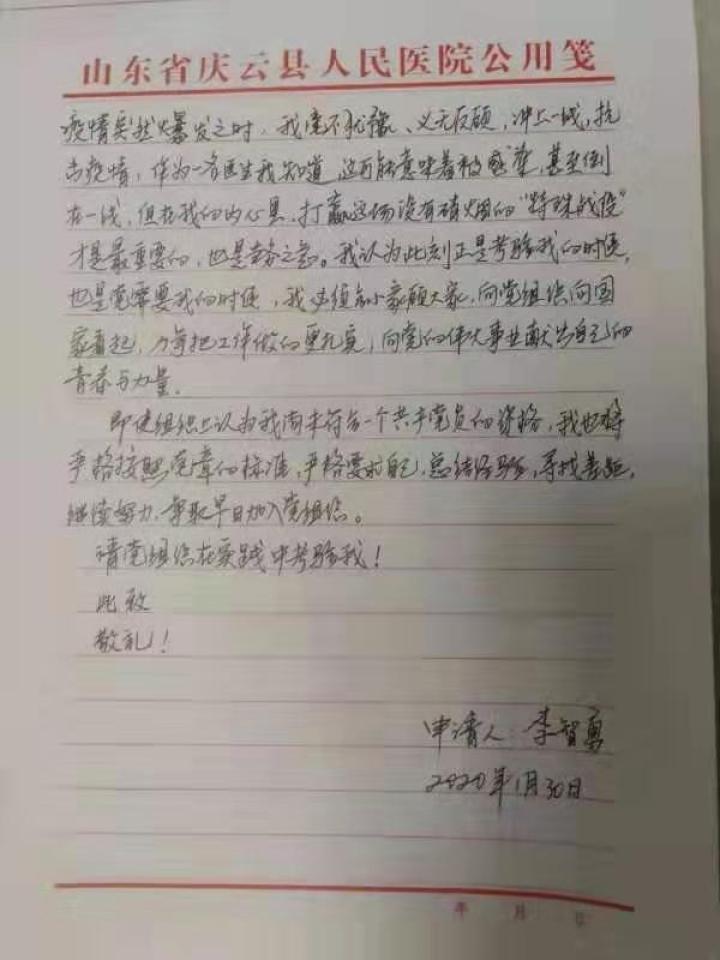 山东省庆云县人民医院公用笺
疫情突然爆发之时，我毫不犹豫、义无反顾，冲上一线，抗
击疫情，作为一名医生我知道，这可能意味着被感染，甚至倒
在一线，但在我的内心里，打赢这场没有硝烟的“特殊战役”
才是最重要的，也是当务之急。我认为此刻正是考验我的时候，
也是党需要我的时候，我必须舍小家顾大家，向党组织向国
家看起，力争把工作做的更扎实，向党的伟大事业献出自己的
青春与力量。
即使组织上认为我尚未符合一个共产党员的资格，我也将
严格按照党章的标准，严格要求自己，总结经验，寻找差距，
继续努力，争取早日加入党组织。
请党组织在实践中考验我！
此致
敬礼！
申请人：李智勇
2020年1月30日
年 月 日